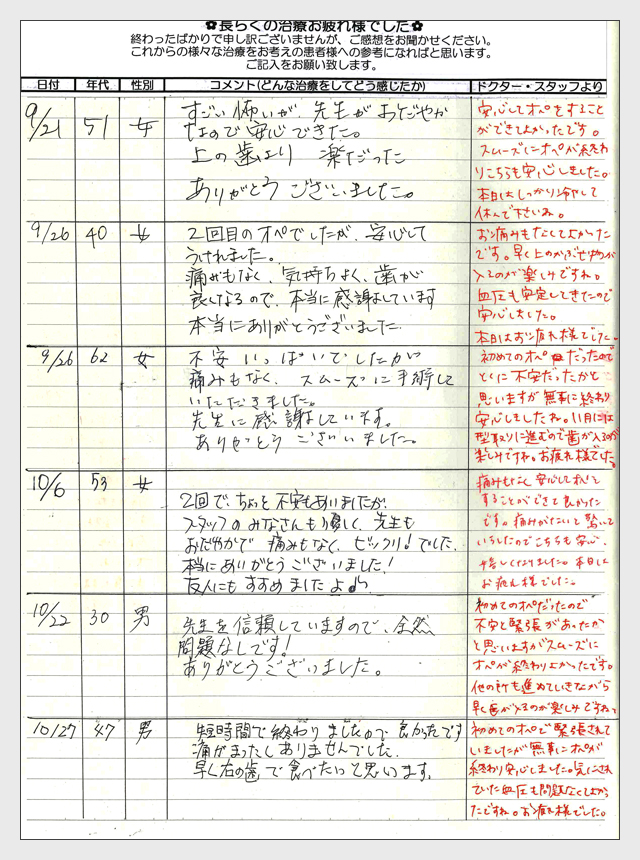 ✿長らくの治療お疲れ様でした✿
終わったばかりで申し訳ございませんが、ご感想をお聞かせください。
これからの様々な治療をお考えの患者様への参考になればと思います。
ご記入をお願い致します。
日付 年代 性別 コメント(どんな治療をしてどう感じたか) ドクター・スタッフより
9/21 51 女
すごい怖いが、先生がおだやか
なので安心できたた。
上の歯より 楽だった
ありがとう ございましたた。
安心してオペをすること
ができてよかったです。
スムーズにオペが終わ
りこちらも安心しました。
本日はしっかり冷やして
休んで下さいね。
9/26 40 女
2回目のオペでしたが、安心して
うけれました。
痛みもなく、気持ちよく、歯が
良くなるので、本当に感謝しています
本当にありがとうございました
お痛みもなくてよかった
です。早く上のかぶせ物が
入るのが楽しみですね。
血圧も安定してきたので
安心しました。
本日はお疲れ様でした。
9/26 62 女
不安いっぱいでしたが
痛みもなく、スムーズに手術して
いただきました。
先生に感謝しています。
ありがとう ございました。
初めてのオペだったので
とくに不安だったかと
思いますが無事に終わり
安心しましたね。11月には
型取りに進むので歯が入るのが
楽しみですね。お疲れ様でした。
10/6 53 女
2回で、ちょっと不安もありましたが、
スタッフのみなさんも優しく、先生も
おだやかで 痛みもなく、ビックリ!でした。
本当にありがとうございました!
友人にもすすめましたよ
痛みもなく安心してオペを
することができて良かった
です。痛みがないと驚いて
いらしたのでこちらも安心、
嬉しくなりました。本日は
お疲れ様でした。
10/22 30 男
先生を信頼していますので、全然
問題なしです!
ありがとうございました。
初めてのオペだったので
不安と緊張があったか
と思いますがスムーズに
オペが終わりよかったです。
他の所も進めていきながら
早く歯が入るのが楽しみですね
10/27 47 男
短時間で終わりましたので良かったです
痛がまったくありませんでした。
早く右の歯で食べたいと思います。
初めてのオペで緊張されて
いましたが無事にオペが
終わり安心しました。気にされ
ていた血圧も問題なくてよかっ
たですね。お疲れ様でした。